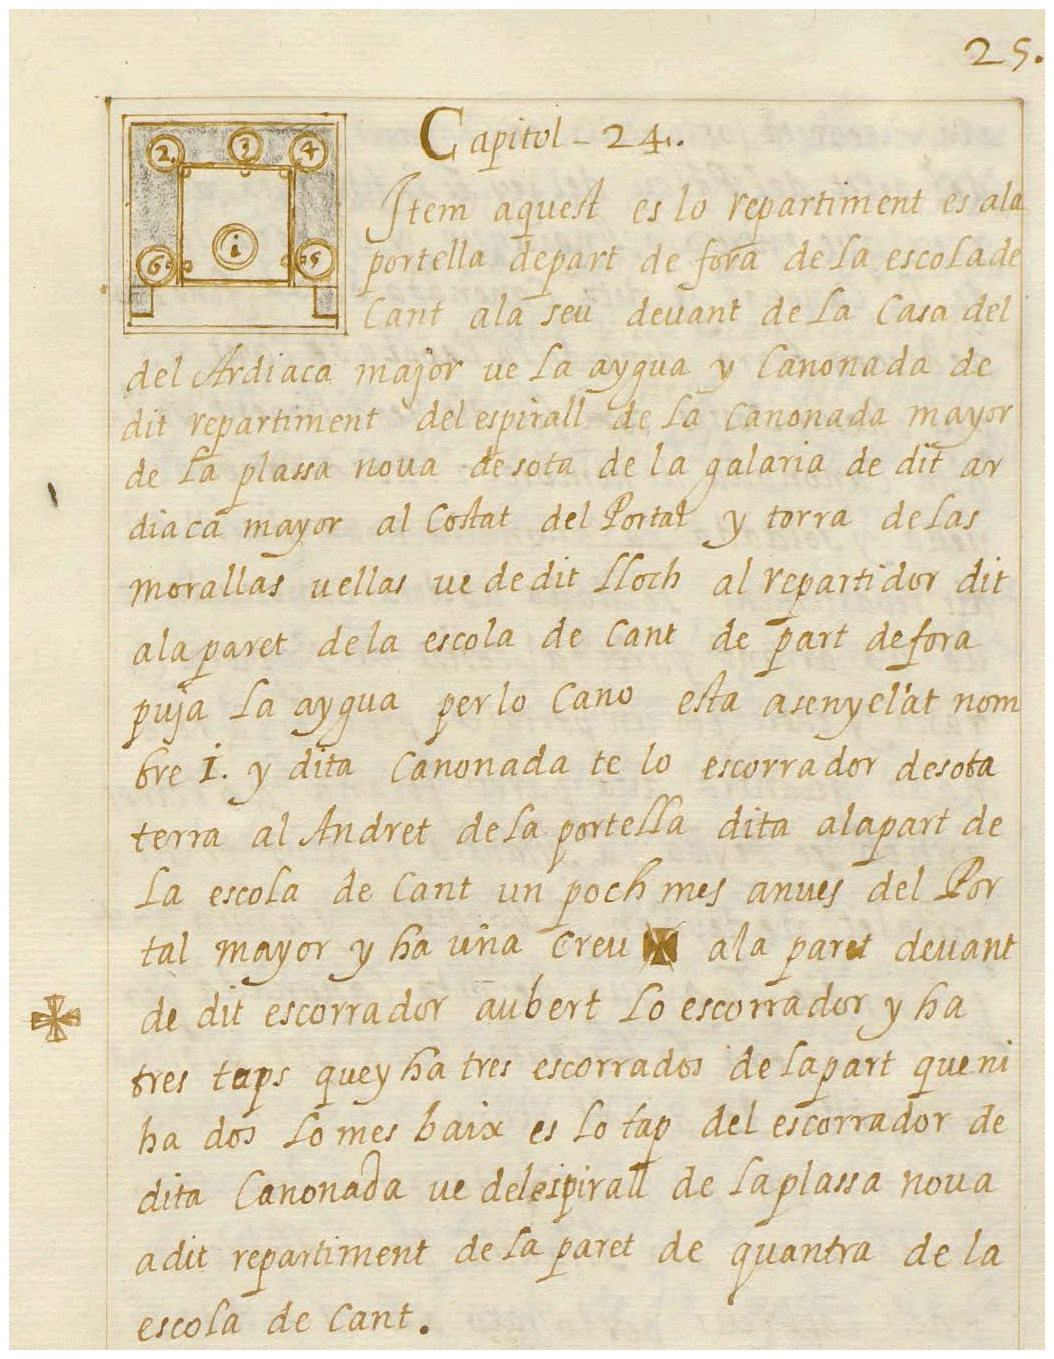 25.
2. 3 4
i
6. 5
Capitol - 24.
Item aquest es lo repartiment es ala
portella depart de fora de la escola de
Cant ala seu deuant de la Casa del
del Ardiaca major ue la aygua y Canonada de
dit repartiment del espirall de la Canonada mayor
de la plassa noua desota de la galaria de dit ar
diaca mayor al Costat del Portal y torra de las
morallas uellas ue de dit lloch al repartidor dit
ala paret de la escola de Cant de part de fora
puja la aygua per lo Cano esta asenyelat nom
bre I. y dita Canonada te lo escorrador desota
terra al Andret de la portella dita ala part de
la escola de Cant un poch mes anues del Por
tal mayor y ha uña creu ✠ ala paret deuant
✠ de dit escorrador aubert lo escorrador y ha
tres taps quey ha tres escorrados de la part que ni
ha dos lo mes baix es lo tap del escorrador de
dita Canonada ue del espirall de la plassa noua
adit repartiment de la paret de quantra de la
escola de Cant.